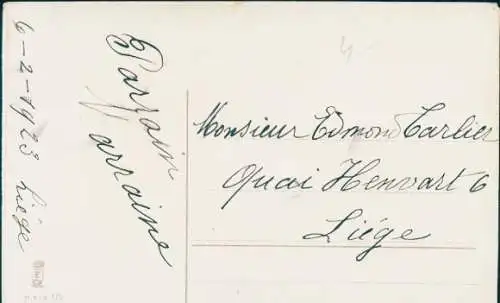 6-2-1923 Liége
Parrain
Marraine
Monsieur Edmond Carlier
Quai Henvart 6
Liége